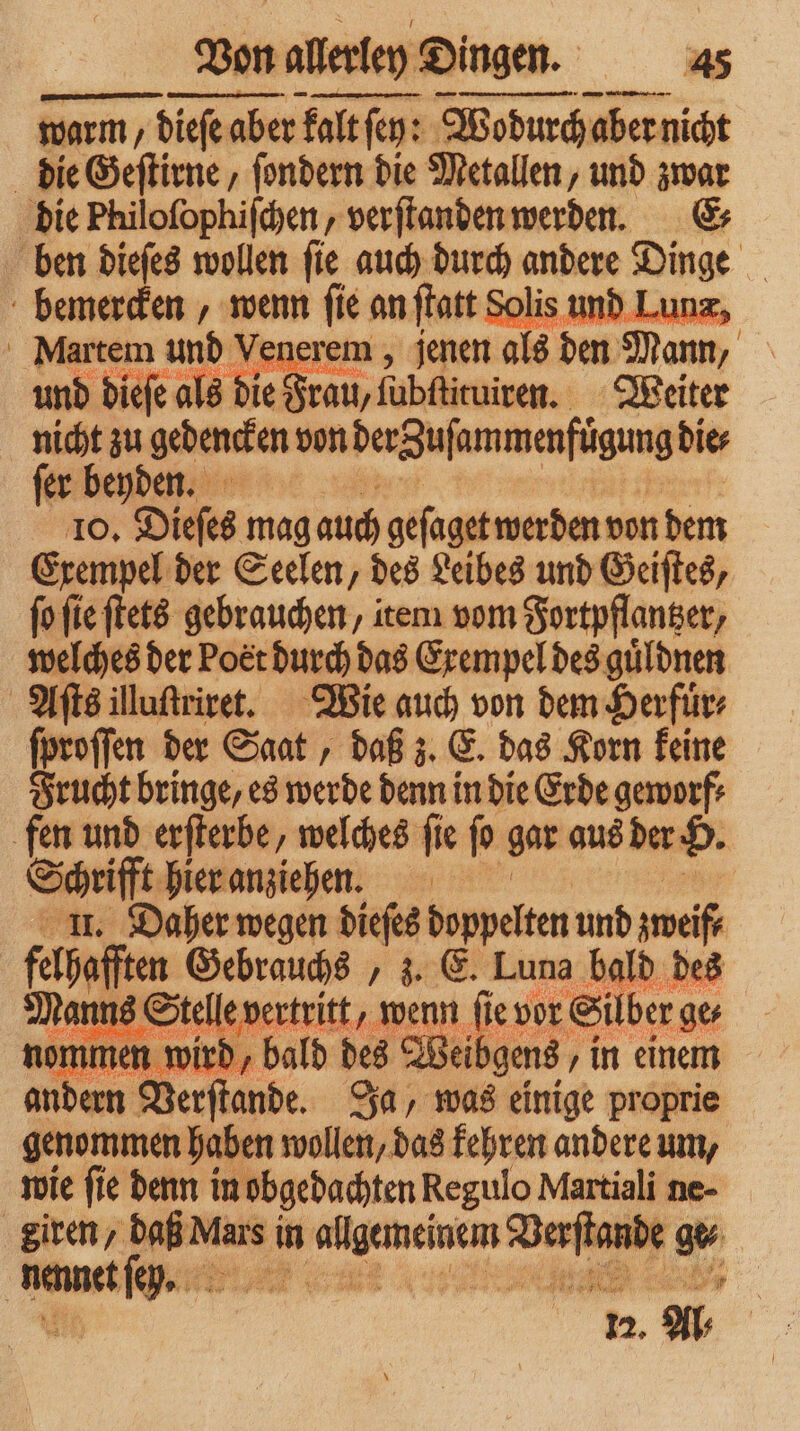 Von allerley Dingen. 45
warm, dieſe aber kalt ſey: Wodurch aber nicht
die Geſtirne, ſondern die Metallen, und zwar
die Philoſophiſchen, verſtanden werden. E⸗
ben dieſes wollen ſie auch durch andere Dinge
bemercken, wenn ſie an ſtatt Solis und Lunæ,
Martem und Venerem, jenen als den Mann,
und dieſe als die Frau, ſubſtituiren. Weiter
nicht zu gedencken von der Zuſammenfuͤgung die⸗
ſer beyden.
10. Dieſes mag auch geſaget werden von dem
Exempel der Seelen, des Leibes und Geiſtes,
ſo ſie ſtets gebrauchen, item vom Fortpflantzer,
welches der Poët durch das Exempel des guͤldnen
Aſts illuſtriret. Wie auch von dem Herfuͤr⸗
ſproſſen der Saat, daß z. E. das Korn keine
Frucht bringe, es werde denn in die Erde geworf⸗
fen und erſterbe, welches ſie ſo gar aus der H.
Schrifft hier anziehen.
11. Daher wegen dieſes doppelten und zweif⸗
felhafften Gebrauchs, z. E. Luna bald des
Manns Stelle vertritt, wenn ſie vor Silber ge⸗
nommen wird, bald des Weibgens, in einem
andern Verſtande. Ja, was einige proprie
genommen haben wollen, das kehren andere um,
wie ſie denn in obgedachten Regulo Martiali ne-
giren, daß Mars in allgemeinem Verſtande ge⸗
nennet ſey.
12. Al⸗